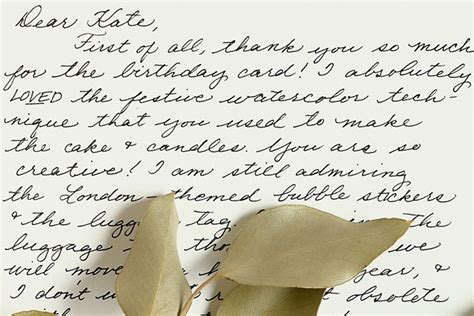 Dear Kate,
First of all, thank you so much
for the birthday card! I absolutely
LOVED the festive watercolor tech-
nique that you used to make
the cake & candles. You are so
creative! I am still admiring
the London-themed bubble stickers
& the luggage tag. The
luggage we
will move year, &
I don't obsolete